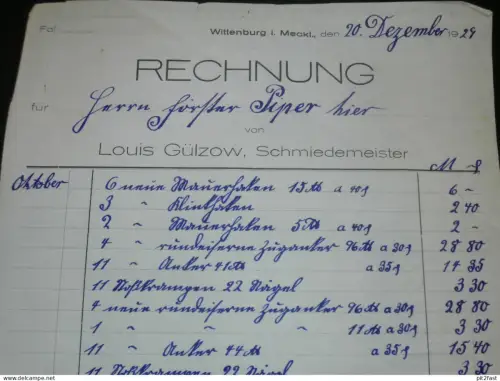 Wittenburg i. Meckl., den 20. Dezember 1929
RECHNUNG
für Herrn Förster Piper hier
von
Louis Gülzow, Schmiedemeister
M ₰
Oktober 6 neue Mauerhaken 15 ℔ a 40 ₰ 6 –
3 " Klinkhaken 2 40
2 " Mauerhaken 5 ℔ a 40 ₰ 2 –
4 " rundeiserne Zuganker 96 ℔ a 30 ₰ 28 80
11 " Anker 41 ℔ a 35 ₰ 14 35
11 Krampen 22 Nägel 3 30
4 neue rundeiserne Zuganker 96 ℔ a 30 ₰ 28 80
1 " " " 11 ℔ a 30 ₰ 3 30
11 " Anker 44 ℔ a 35 ₰ 15 40
11 22 Nägel 3 30